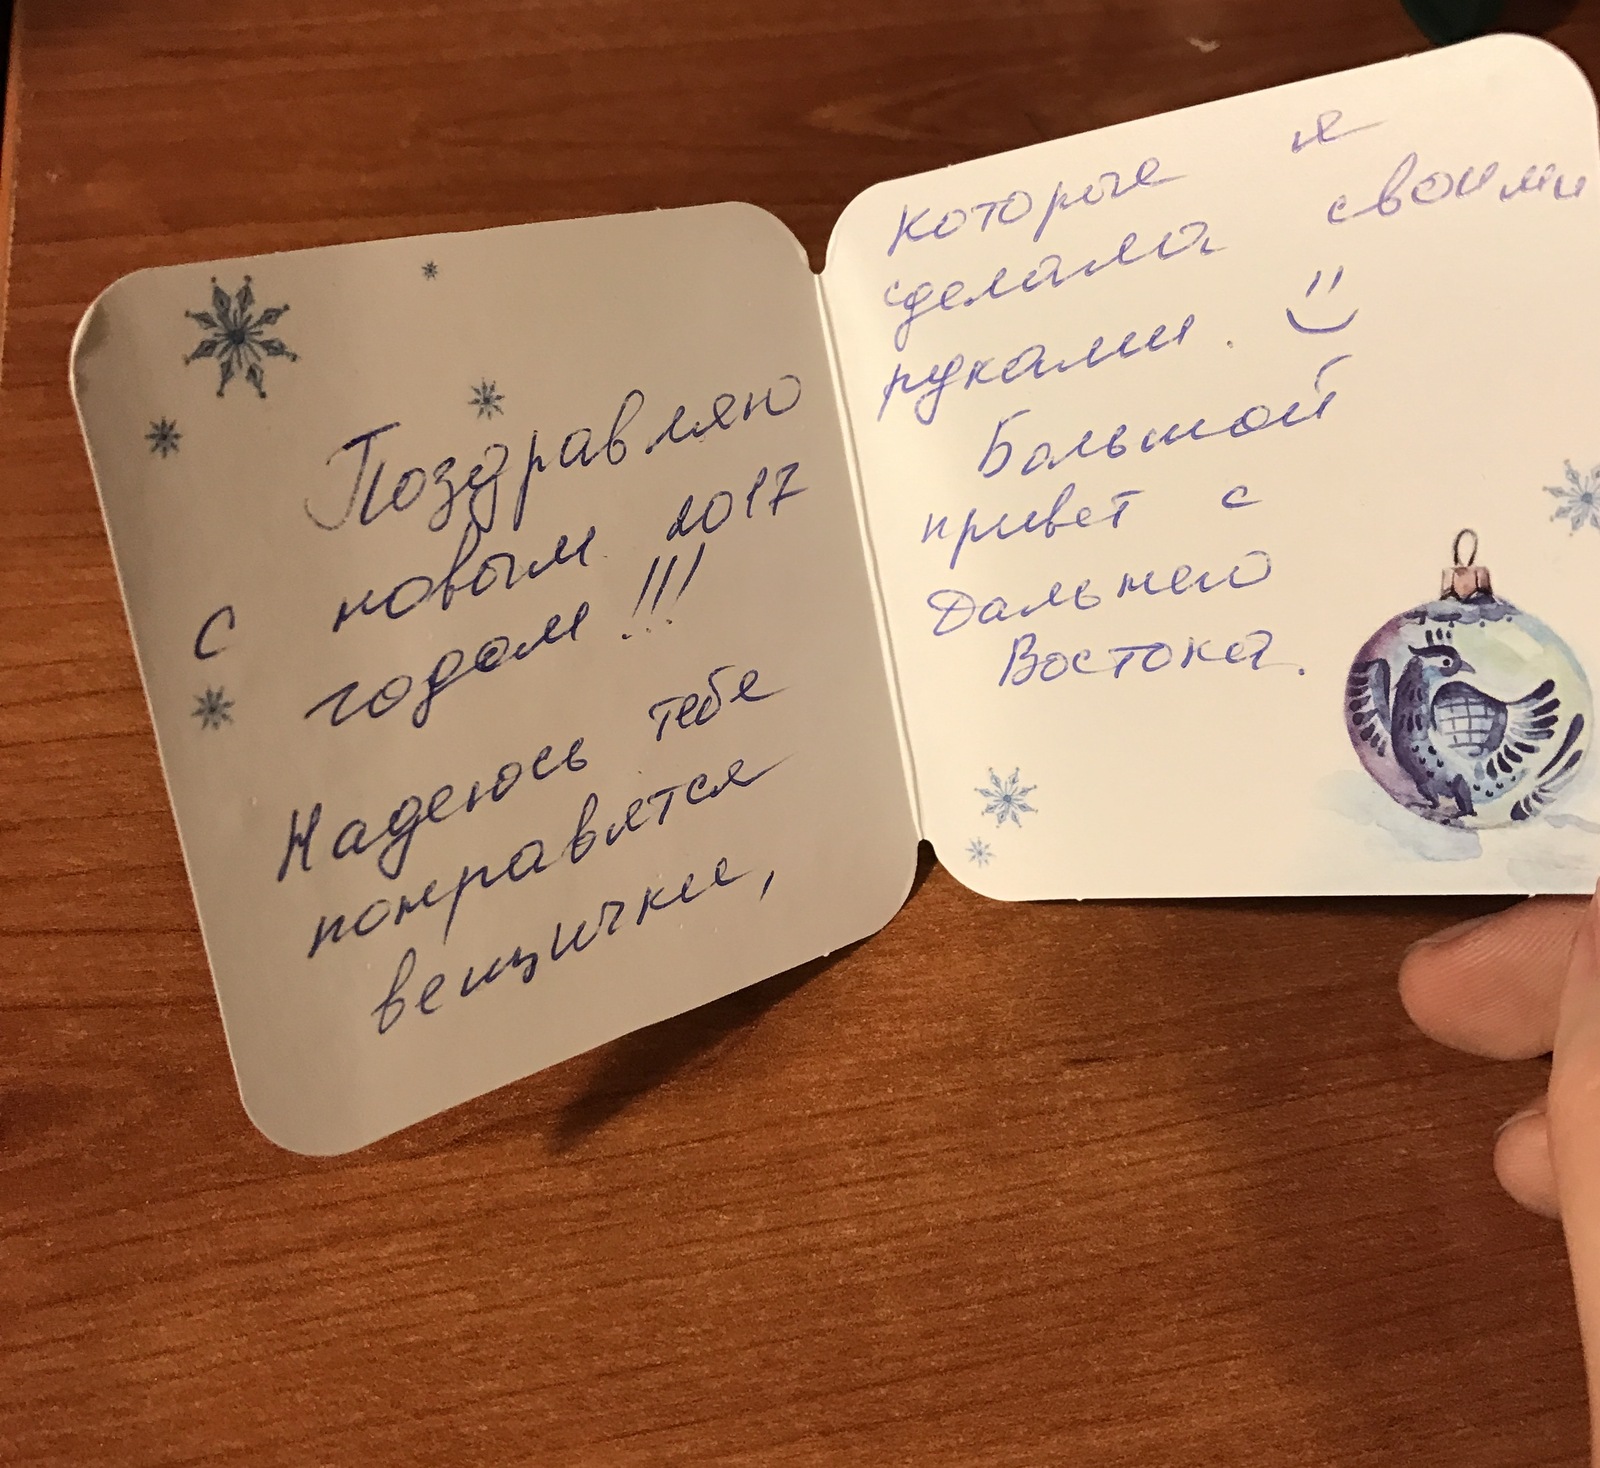 Поздравляю
с новым 2017
годом!!!
Надеюсь тебе
понравятся
вещички,
которые я
сделала своими
руками. :)
Большой
привет с
Дальнего
Востока.